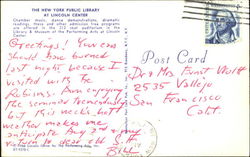 THE NEW YORK PUBLIC LIBRARY
AT LINCOLN CENTER
Chamber music, dance demonstrations, dramatic
readings, these and other admission free programs
are offered in the 212 seat auditorium of the
Library & Museum of the Performing Arts at Lincoln
Center.
Greetings! You ears
should have burned
last night because I
visited with the
Robins. Am enjoying
the seminar tremendously
but this week's hot
weather makes me
anticipate Aug 2nd & my
return to dear old S.F.
Bill
Post Card
Dr & Mrs. Ernst Wolff
2535 Vallejo
San Francisco
Calif.